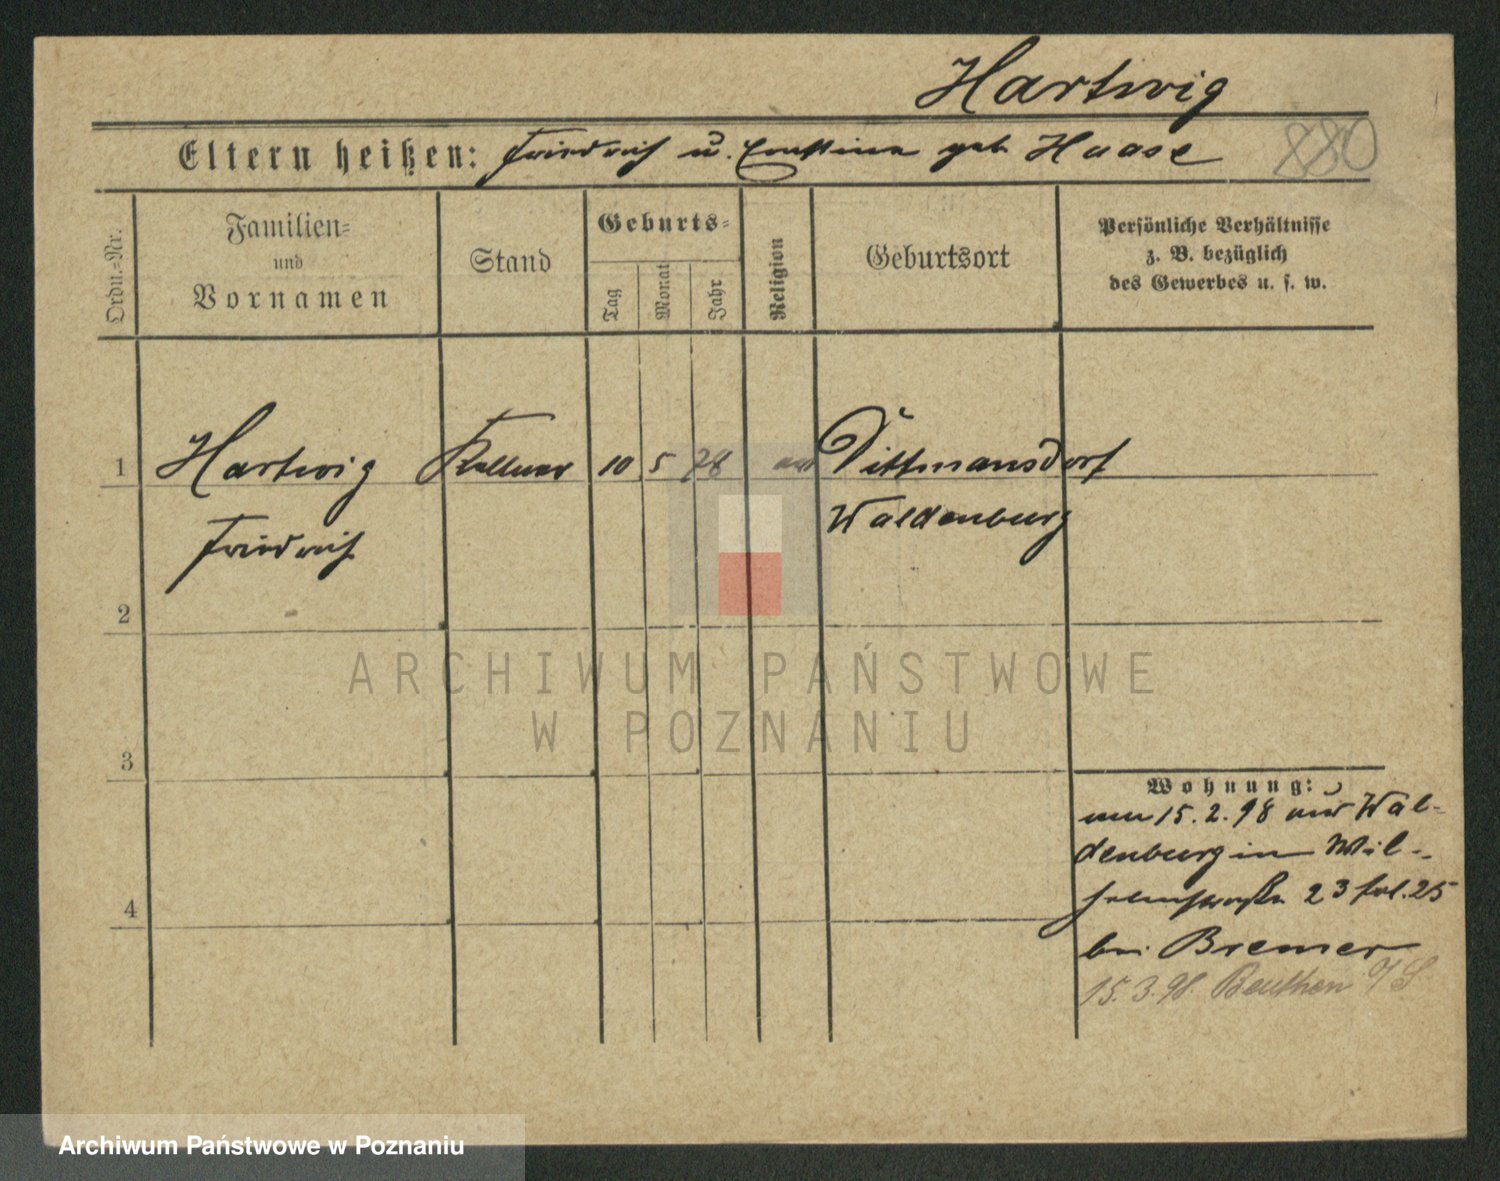 Hartwig
Eltern heißen: Friedrich u. Ernstine geb. Haase
880
Ordn.=Nr.
Familien=
und
Vornamen
Stand
Geburts=
Tag
Monat
Jahr
Religion
Geburtsort
Persönliche Verhältnisse
z. B. bezüglich
des Gewerbes u. s. w.
1 Hartwig Kellner 10 5 78 Dittmansdorf
Friedrich Waldenburg
2
3
4
ARCHIWUM PAŃSTWOWE
W POZNANIU
Wohnung:
15.2.98 aus Wal-
denburg in Wil-
helmstraße 23 25
bei Bremer
15.3.98. Beuthen O/S
Archiwum Państwowe w Poznaniu